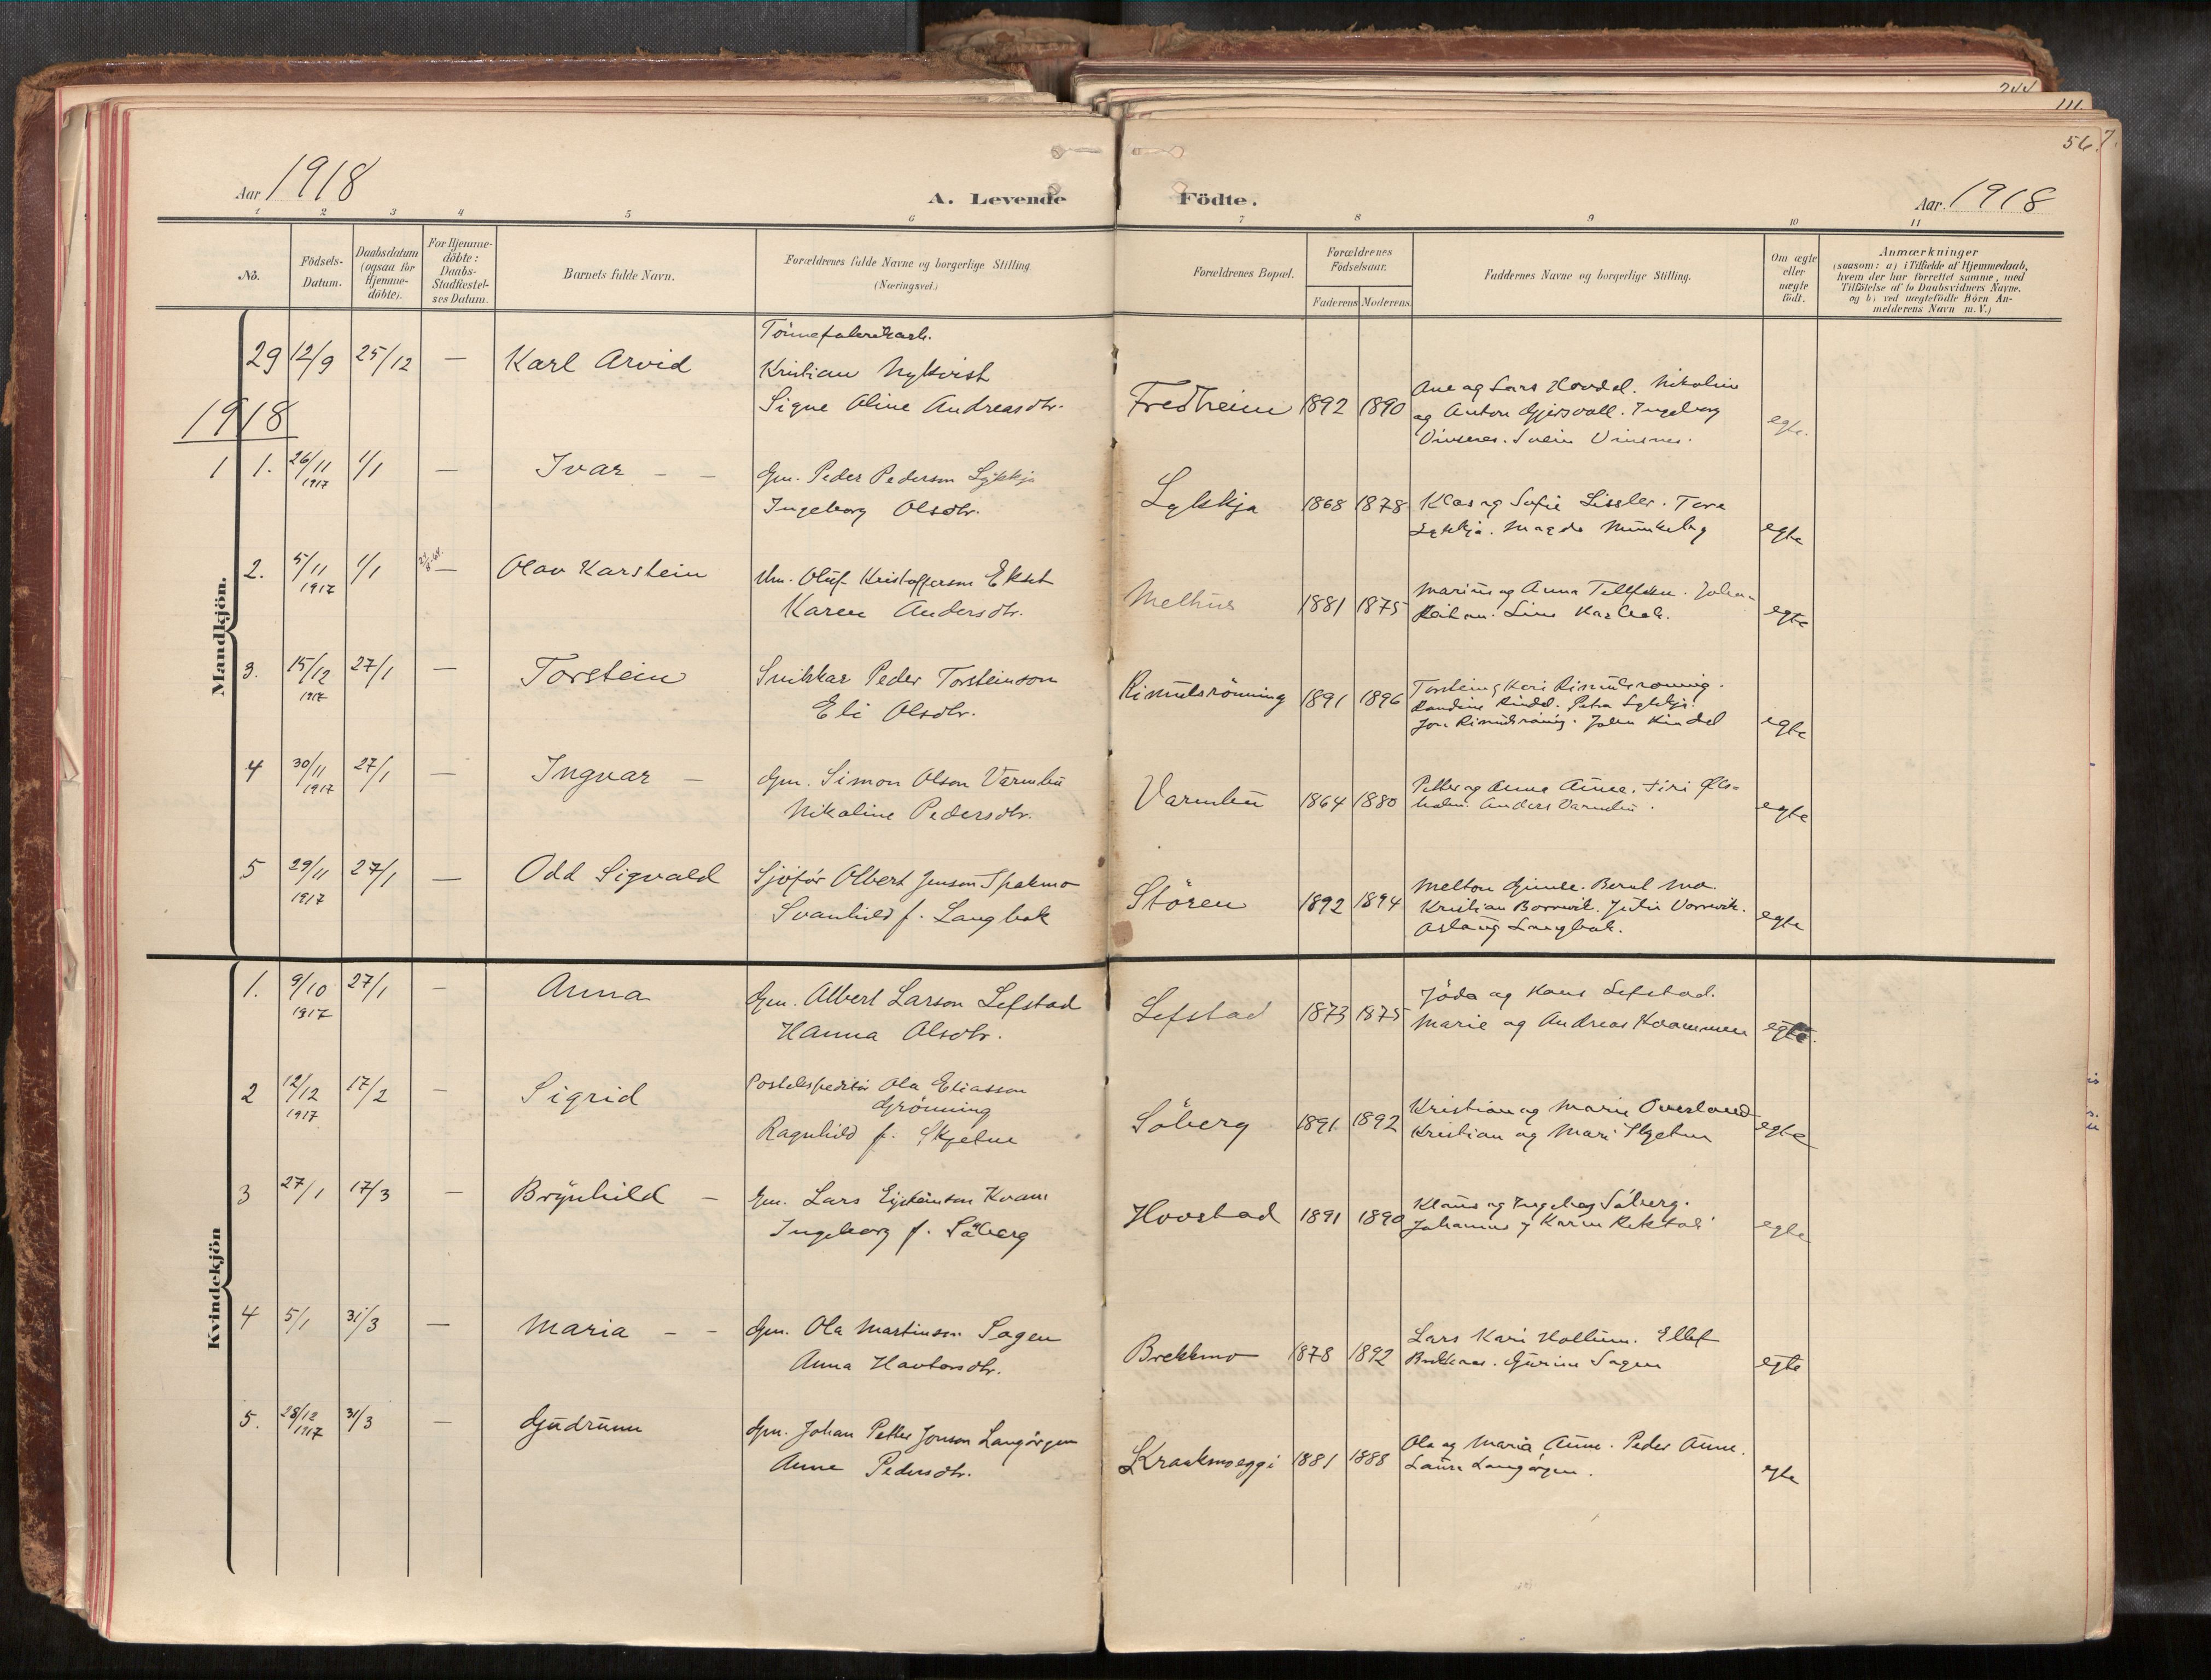 244
111.
56.
7.
Aar 1918
A. Levende Födte.
Aar. 1918
1 2 3 4 5 6 7 8 9 10 11
No.
Födsels-
Datum.
Daabsdatum
(ogsaa for
Hjemme-
döbte).
For Hjemme-
döbte:
Daabs-
Stadfæstel-
ses Datum.
Barnets fulde Navn.
Forældrenes fulde Navne og borgerlige Stilling
(Næringsvei.)
Forældrenes Bopæl.
Forældrenes
Födselsaar.
Faderens Moderens.
Faddernes Navne og borgerlige Stilling.
Om ægte
eller
uægte
födt.
Anmærkninger
(saasom: a) i Tilfælde af Hjemmedaab,
hvem der har forrettet samme, med
Tilföielse af to Daabsvidners Navne,
og b) ved uægtefödte Börn An-
melderens Navn m. V.)
Mandkjön.
29 12/9 25/12 — Karl Arvid
Tönnefabrikarb.
Kristian Nykvist
Signe Oline Andreasdtr.
Fredheim 1892 1890
Ane og Lars Hovdal. Nikoline
og Anton Gjersvoll. Ingeborg
Vinsnes. Svein Vinsnes.
egte.
1918
1 1. 26/11 1917 1/1 — Ivar — —
Gm. Peder Pederson Lykkja
Ingeborg Olsdtr.
Lykkja 1868 1878
Klas og Sofie Lissler. Tora
Lykkja. Magda Munkeby
egte
2. 5/11 1917 1/1 — Olav Karstein
Oluf Kristofferson Ekset
Karen Andersdtr.
Melhus 1881 1875
Marius og Anna Tellefsen. Johan
Line
egte
3. 15/12 1917 27/1 — Torstein
Snikkar Peder Torsteinson
Eli Olsdtr.
Rimulsrönning 1891 1896
Torstein og Kari Rimulsrönning.
Randine Rindal. Petra Lykkja.
Jon Rimulsrönning. John Rindal
egte
4 30/11 1917 27/1 — Ingvar —
Gm. Simon Olson Varmbu
Nikoline Pedersdtr.
Varmbu 1864 1880
Petter og Anna Aune. Siri Øls-
holm. Anders Varmbu.
egte
5 29/11 1917 27/1 — Odd Sigvald
Sjöför Olbert Jenson Spakmo
Svanhild f. Langbak
Stören 1892 1894
Melton Gimle. Bernt Mo.
Kristian Borrevik. Julie Vorrevik.
Aslaug Langbak.
egte
Kvindekjön
1. 9/10 1917 27/1 — Anna
Gm. Albert Larson Lefstad
Hanna Olsdtr.
Lefstad 1873 1875
og Hans Lefstad.
Marie og Andreas Kvammen
egte.
2 12/12 1917 17/2 — Sigrid
Postekspeditör Ola Eliasson
Grönning
Ragnhild f. Skjetne
Söberg 1891 1892
Kristian og Marie Overland
Kristian og Mari Skjetne
egte
3 27/1 17/3 — Brynhild —
Gm. Lars Eysteinson Kvam
Ingeborg f. Söberg
Hovstad 1891 1890
Klaus og Ingeborg Söberg.
Johannes og Karen Rekstad
egte
4 5/1 31/3 — Maria — —
Gm. Ola Martinson Sagen
Anna Havtorsdtr.
Brekkmo 1878 1892
Lars Kari Hollum. Ellef
Brekkmo. Guruine Sagen
egte
5. 28/12 1917 31/3 — Gudrunn
Gm. Johan Petter Jonson Langörgen
Anne Pedersdtr.
Kraakmoeggi 1881 1888
Ola og Maria Aune. Peder Aune.
Laura Langörgen.
egte